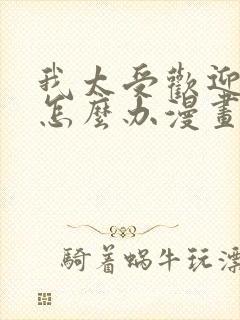 我太受歡迎
怎麼办漫畫
騎着蝸牛玩漂